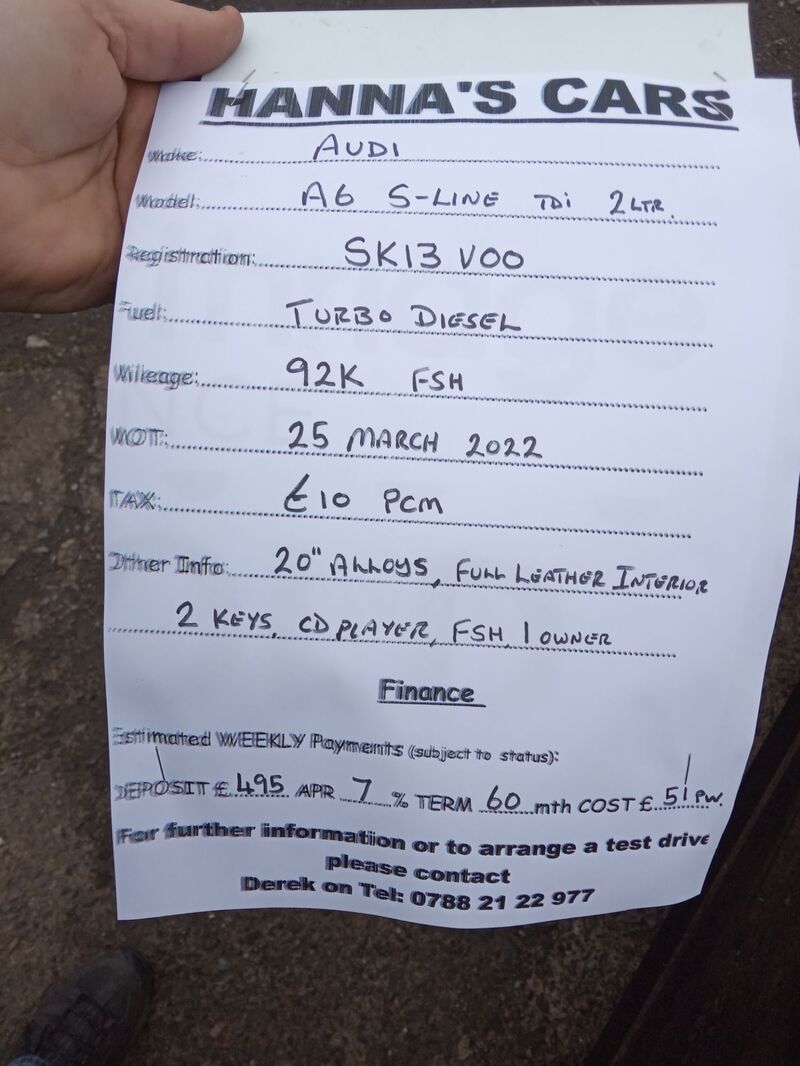 HANNA'S CARS
Make: AUDI
Model: A6 S-LINE TDi 2 LTR.
Registration: SK13 VOO
Fuel: TURBO DIESEL
Mileage: 92K FSH
MOT: 25 MARCH 2022
TAX: £10 PCM
Other Info: 20" ALLOYS, FULL LEATHER INTERIOR
2 KEYS, CD PLAYER, FSH, 1 OWNER
Finance
Estimated WEEKLY Payments (subject to status):
DEPOSIT £ 495 APR 7 % TERM 60 mth COST £ 51 PW.
For further information or to arrange a test drive
please contact
Derek on Tel: 0788 21 22 977